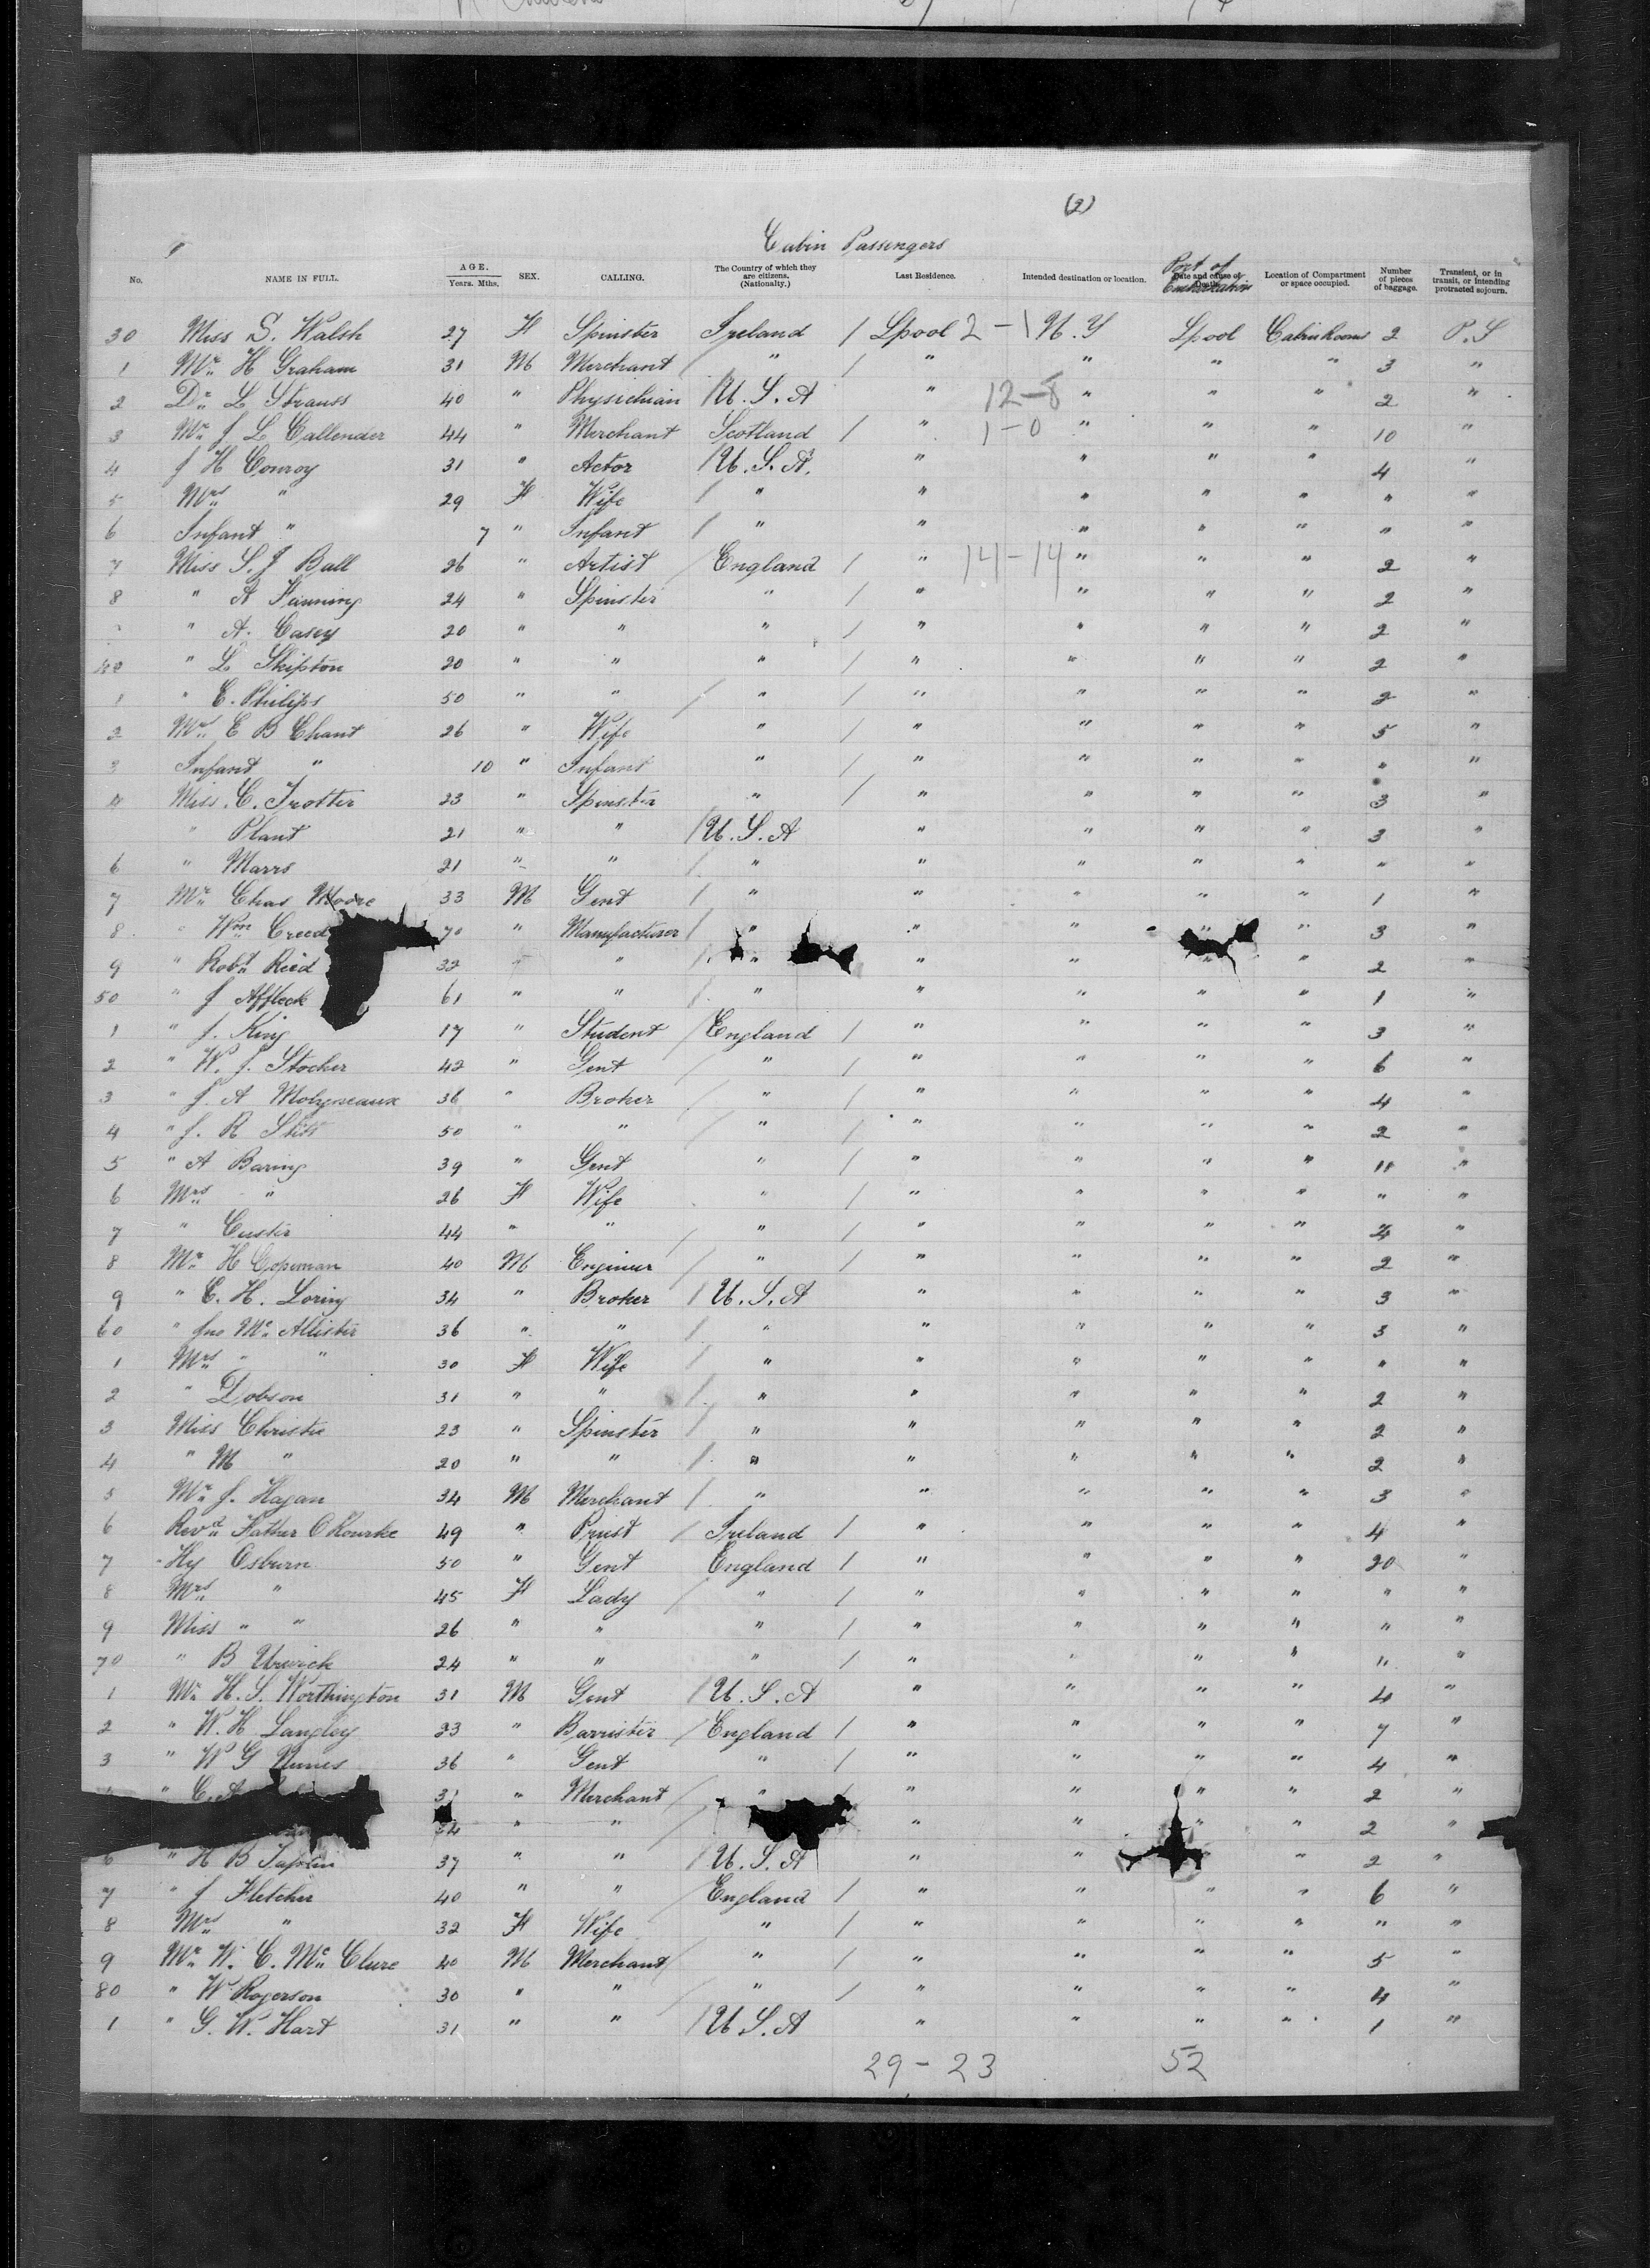 (2)
Cabin Passengers
No. NAME IN FULL. AGE. Years. Mths. SEX. CALLING. The Country of which they are citizens. (Nationalty.) Last Residence. Intended destination or location. Port of Embarkation Date and cause of Death. Location of Compartment or space occupied. Number of pieces of baggage. Transient, or in transit, or intending protracted sojourn.
30 Miss S. Walsh 27 F Spinster Ireland / Lpool 2 - \ N. Y Lpool Cabin Rooms 2 P. S
1 Mr. H Graham 31 M Merchant / " / " " " " 3 "
2 Dr. L Strauss 40 " Physichian / U. S. A " 12-8 " " " 2 "
3 Mr. J L Callender 44 " Merchant Scotland / " 1-0 " " " 10 "
4 J H Conroy 31 " Actor / U. S. A. " " " " 4 "
5 Mrs " 29 F Wife / " " " " " " "
6 Infant " 7 " Infant / " " " " " " "
7 Miss S. J Ball 26 " Artist / England / " 14-14 " " " 2 "
8 " A Fanning 24 " Spinster " / " " " " 2 "
" A. Casey 20 " " " / " " " " 2 "
40 " L Skipton 20 " " " / " " " " 2 "
1 " E. Philips 50 " " / " / " " " " 2 "
2 Mrs E B Chant 26 " Wife " / " " " " 5 "
3 Infant " 10 " Infant " / " " " " " "
4 Miss. C. Trotter 23 " Spinster " / " " " " 3 "
" Plant 21 " " / U. S. A " " " " 3 "
6 " Marrs 21 " " / " " " " " " "
7 Mr. Chas Moore 33 M Gent / " " " " " 1 "
8 " Wm Creed 70 " Manufacturer / " " " " " 3 "
9 " Robt Reid 32 " " / " " " " " 2 "
50 " J Affleck 61 " " / " " " " " 1 "
1 " J. King 17 " Student / England / " " " " 3 "
2 " W. J. Stocker 42 " Gent / " / " " " " 6 "
3 " J. A Molyneaux 36 " Broker / " / " " " " 4 "
4 " J. R 50 " " / " / " " " " 2 "
5 " A Baring 39 " Gent " / " " " " 11 "
6 Mrs " 26 F Wife " / " " " " " "
7 " Custer 44 " " / " / " " " " 4 "
8 Mr. H Copeman 40 M Engineer / " / " " " " 2 "
9 " E. H. Loring 34 " Broker / U. S. A " " " " 3 "
60 " Jno McAllister 36 " " / " " " " " 3 "
1 Mrs " " 30 F Wife / " " " " " " "
2 " Dobson 31 " " / " " " " " 2 "
3 Miss Christie 23 " Spinster / " " " " " 2 "
4 " M " 20 " " / " " " " " 2 "
5 Mr. J. Hagan 34 M Merchant / " " " " " 3 "
6 Revd Father O'Rourke 49 " Priest / Ireland / " " " " 4 "
7 Hy Osburn 50 " Gent England / " " " " 20 "
8 Mrs " 45 F Lady / " / " " " " " "
9 Miss " " 26 " " " / " " " " " "
70 " B Urwick 24 " " " / " " " " " "
1 Mr. H. S. Worthington 31 M Gent / U. S. A " " " " 4 "
2 " W. H Langley 23 " Barrister / England / " " " " 7 "
3 " W G Nunes 36 " Gent " / " " " " 4 "
" C. A. " Merchant / " / " " " " 2 "
" " / " " " " 2 "
6 " H B Taplin 37 " " / U. S. A " " " 2 "
7 " J Fletcher 40 " " / England / " " " " 6 "
8 Mrs " 32 F Wife " / " " " " " "
9 Mr. W. C. McClure 40 M Merchant / " / " " " " 5 "
80 " W Rogerson 30 " " / " / " " " " 4 "
1 " G. W. Hart 31 " " / U S. A " " " " 1 "
29 - 23 52